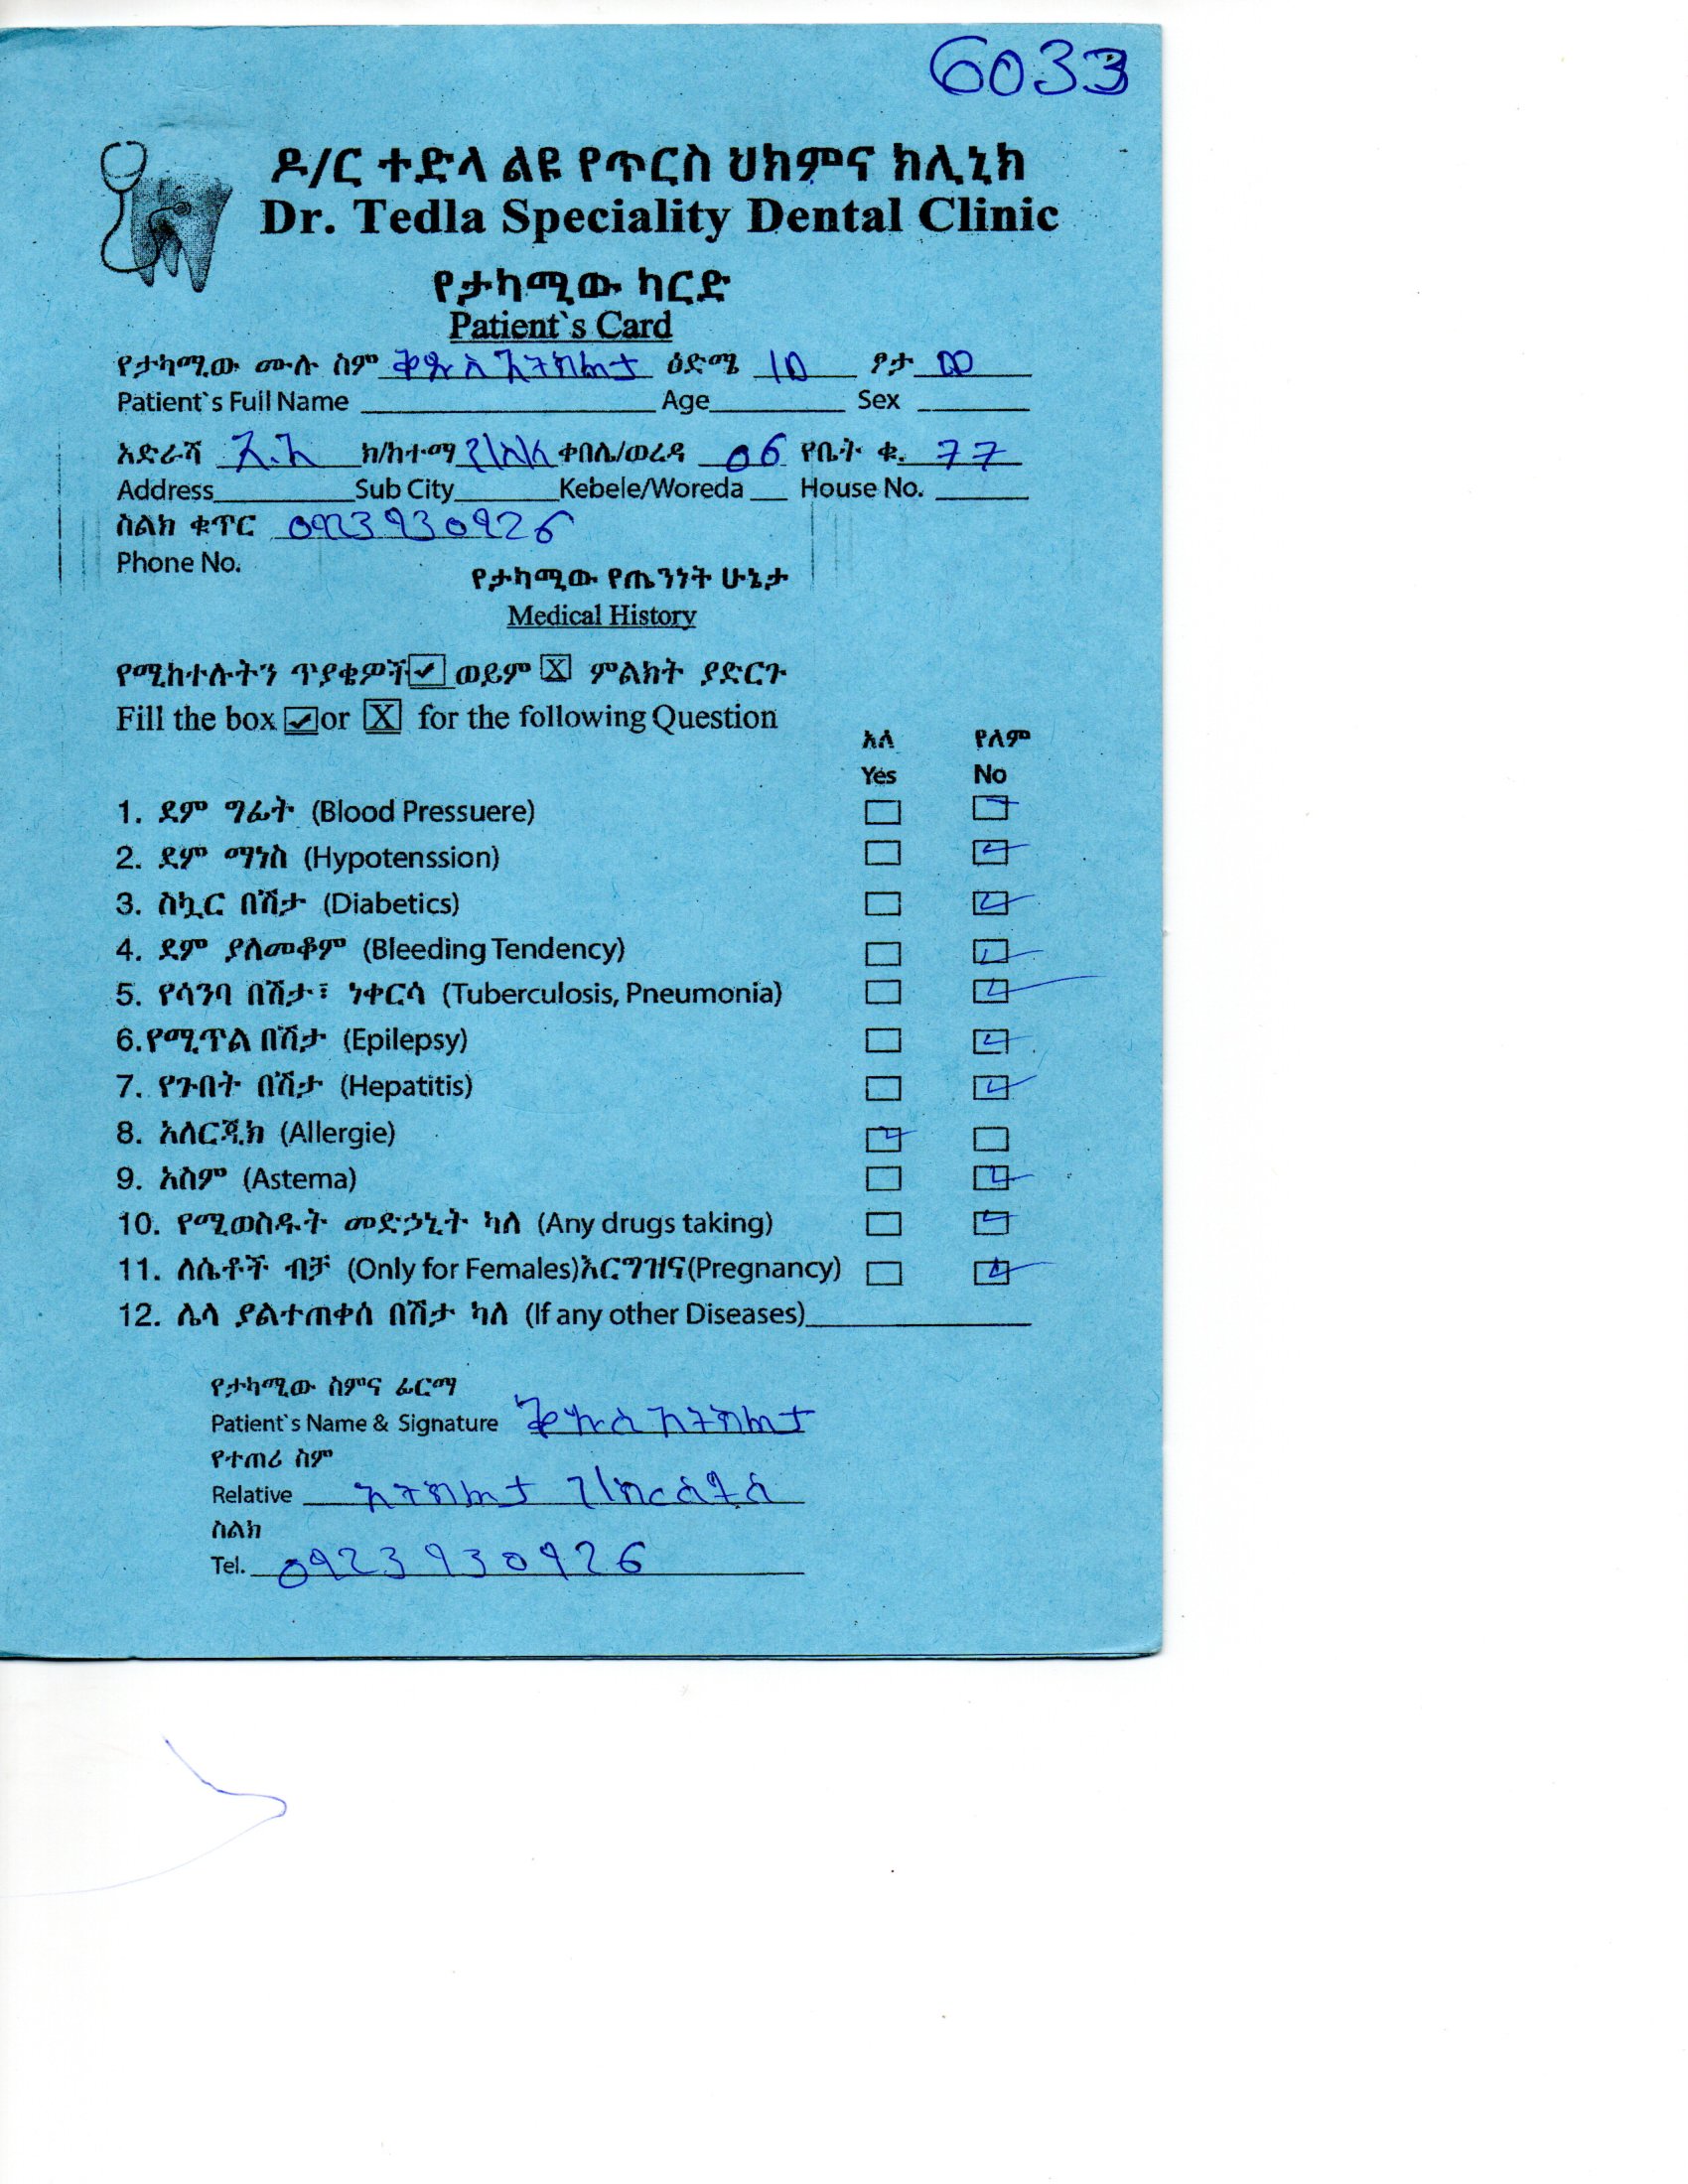 6033
ዶ/ር ተድላ ልዩ የጥርስ ህክምና ክሊኒክ
Dr. Tedla Speciality Dental Clinic
የታካሚው ካርድ
Patient`s Card
የታካሚው ሙሉ ስም አትክልት ዕድሜ 10 ፆታ
Patient`s Full Name Age Sex
አድራሻ አ.አ ክ/ከተማ ቀበሌ/ወረዳ 06 የቤት ቁ. 77
Address Sub City Kebele/Woreda House No.
ስልክ ቁጥር 0923930926
Phone No.
የታካሚው የጤንነት ሁኔታ
Medical History
የሚከተሉትን ጥያቄዎች ✓ ወይም X ምልክት ያድርጉ
Fill the box ✓ or X for the following Question
አለ የለም
Yes No
1. ደም ግፊት (Blood Pressuere)
2. ደም ማነስ (Hypotenssion)
3. ስኳር በሽታ (Diabetics)
4. ደም ያለመቆም (Bleeding Tendency)
5. የሳንባ በሽታ፣ ነቀርሳ (Tuberculosis, Pneumonia)
6.የሚጥል በሽታ (Epilepsy)
7. የጉበት በሽታ (Hepatitis)
8. አለርጂክ (Allergie)
9. አስም (Astema)
10. የሚወስዱት መድኃኒት ካለ (Any drugs taking)
11. ለሴቶች ብቻ (Only for Females)እርግዝና(Pregnancy)
12. ሌላ ያልተጠቀሰ በሽታ ካለ (If any other Diseases)
የታካሚው ስምና ፊርማ
Patient`s Name & Signature
የተጠሪ ስም
Relative
ስልክ
Tel. 0923930926